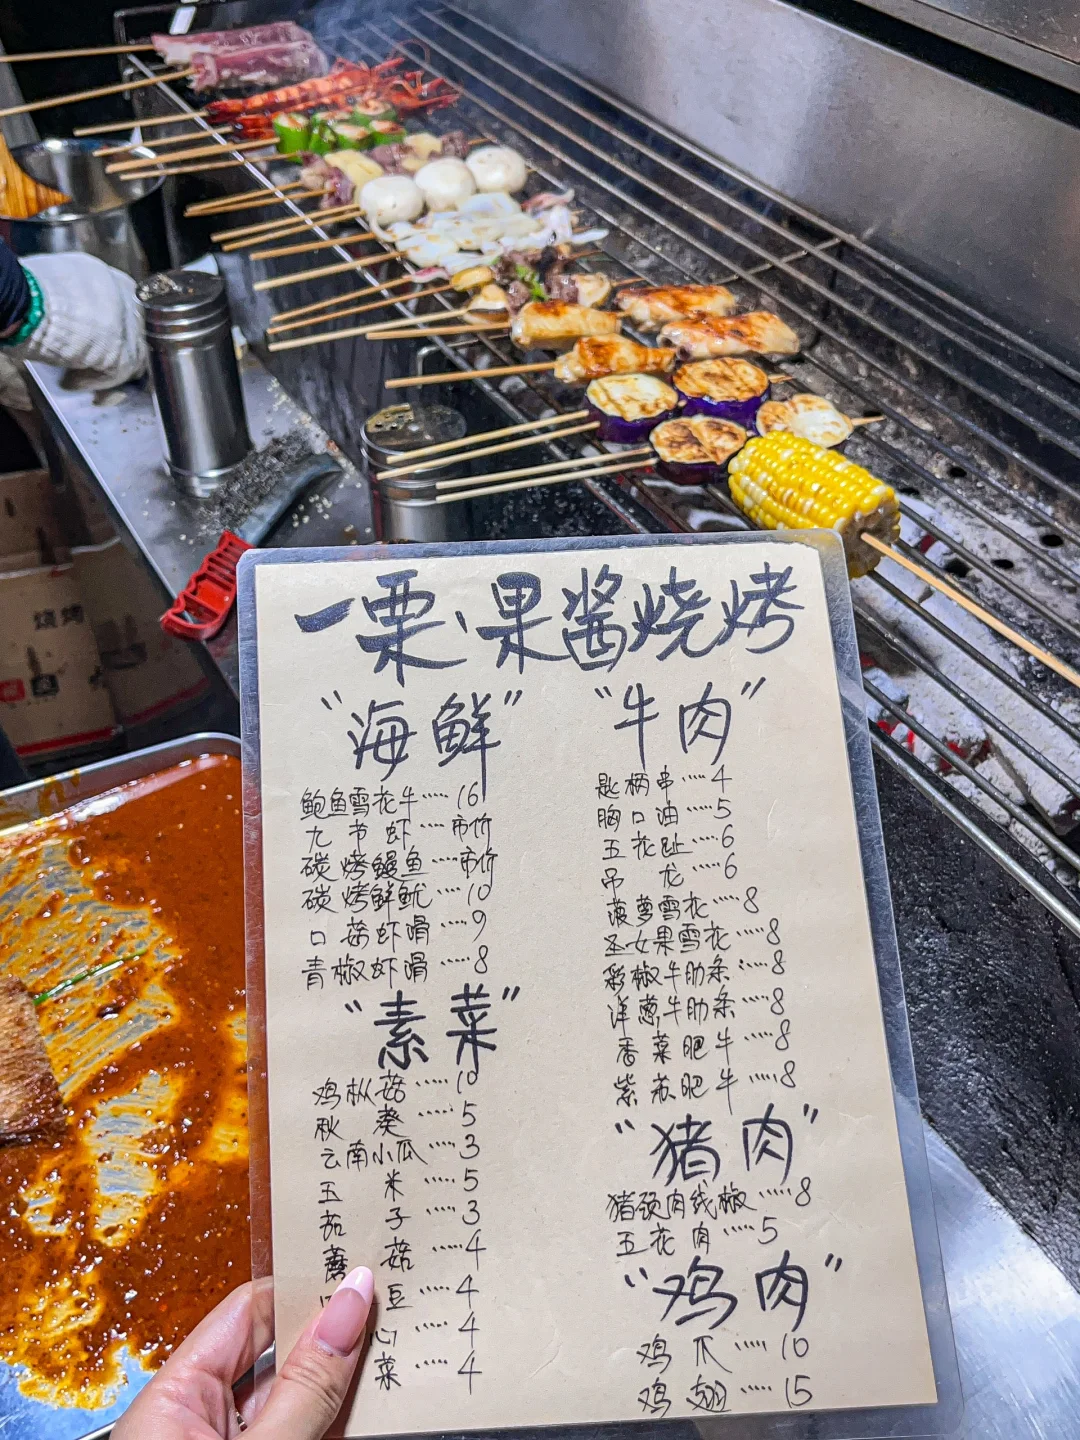 烧烤
一栗·果酱烧烤
"海鲜"
鲍鱼雪花牛·····16
九节虾····市价
碳烤鳗鱼····市价
碳烤鲜鱿····10
口菇虾滑····9
青椒虾滑····8
"素菜"
鸡枞菇·····10
秋葵·····5
云南小瓜····3
玉米·····5
茄子····3
蘑菇·····4
豆·····4
心·····4
菜·····4
"牛肉"
匙柄串·····4
胸口油·····5
五花趾·····6
吊龙·····6
菠萝雪花·····8
圣女果雪花····8
彩椒牛肋条····8
洋葱牛肋条····8
香菜肥牛·····8
紫苏肥牛·····8
"猪肉"
猪颈肉线椒·····8
五花肉·····5
"鸡肉"
鸡爪·····10
鸡翅·····15